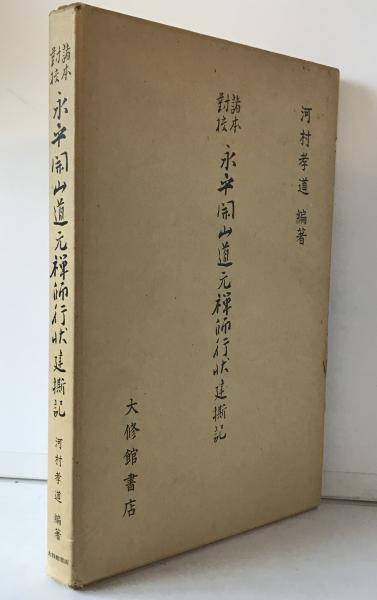 河村孝道 編著
諸本
對校
永平開山道元禅師行状建撕記
大修館書店
諸本
對校
永平開山道元禅師行状建撕記
河村孝道 編著
大修館書店